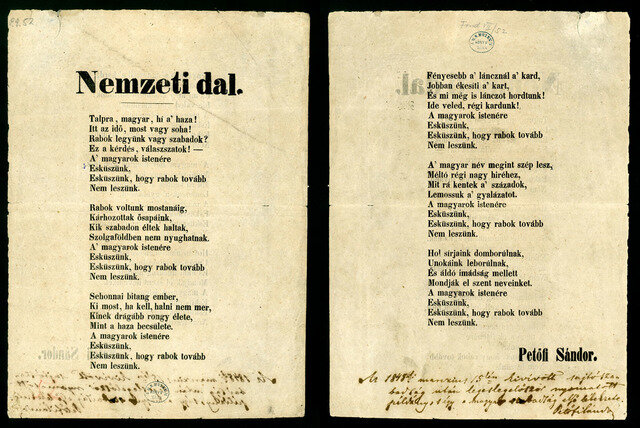 Nemzeti dal.
Talpra, magyar, hí a' haza!
Itt az idő, most vagy soha!
Rabok legyünk vagy szabadok?
Ez a kérdés, válaszszatok! —
A' magyarok istenére
Esküszünk,
Esküszünk, hogy rabok tovább
Nem leszünk.
Rabok voltunk mostanáig,
Kárhozottak ősapáink,
Kik szabadon éltek haltak,
Szolgaföldben nem nyughatnak.
A' magyarok istenére
Esküszünk,
Esküszünk, hogy rabok tovább
Nem leszünk.
Sehonnai bitang ember,
Ki most, ha kell, halni nem mer,
Kinek drágább rongy élete,
Mint a haza becsülete.
A magyarok istenére
Esküszünk,
Esküszünk, hogy rabok tovább
Nem leszünk.
Fényesebb a' láncznál a' kard,
Jobban ékesiti a' kart,
És mi még is lánczot hordtunk!
Ide veled, régi kardunk!
A magyarok istenére
Esküszünk,
Esküszünk, hogy rabok tovább
Nem leszünk.
A' magyar név megint szép lesz,
Méltó régi nagy hiréhez,
Mit rá kentek a' századok,
Lemossuk a' gyalázatot.
A magyarok istenére
Esküszünk,
Esküszünk, hogy rabok tovább
Nem leszünk.
Hol sirjaink domborúlnak,
Unokáink leborúlnak,
És áldó imádság mellett
Mondják el szent neveinket.
A magyarok istenére
Esküszünk,
Esküszünk, hogy rabok tovább
Nem leszünk.
Petőfi Sándor.
Az 1848diki marczius 15én kivívott sajtósza-
badság után legeslegelőször nyomatott
példány, s így a magyar szabadság első lélekzete.
Petőfi Sándor